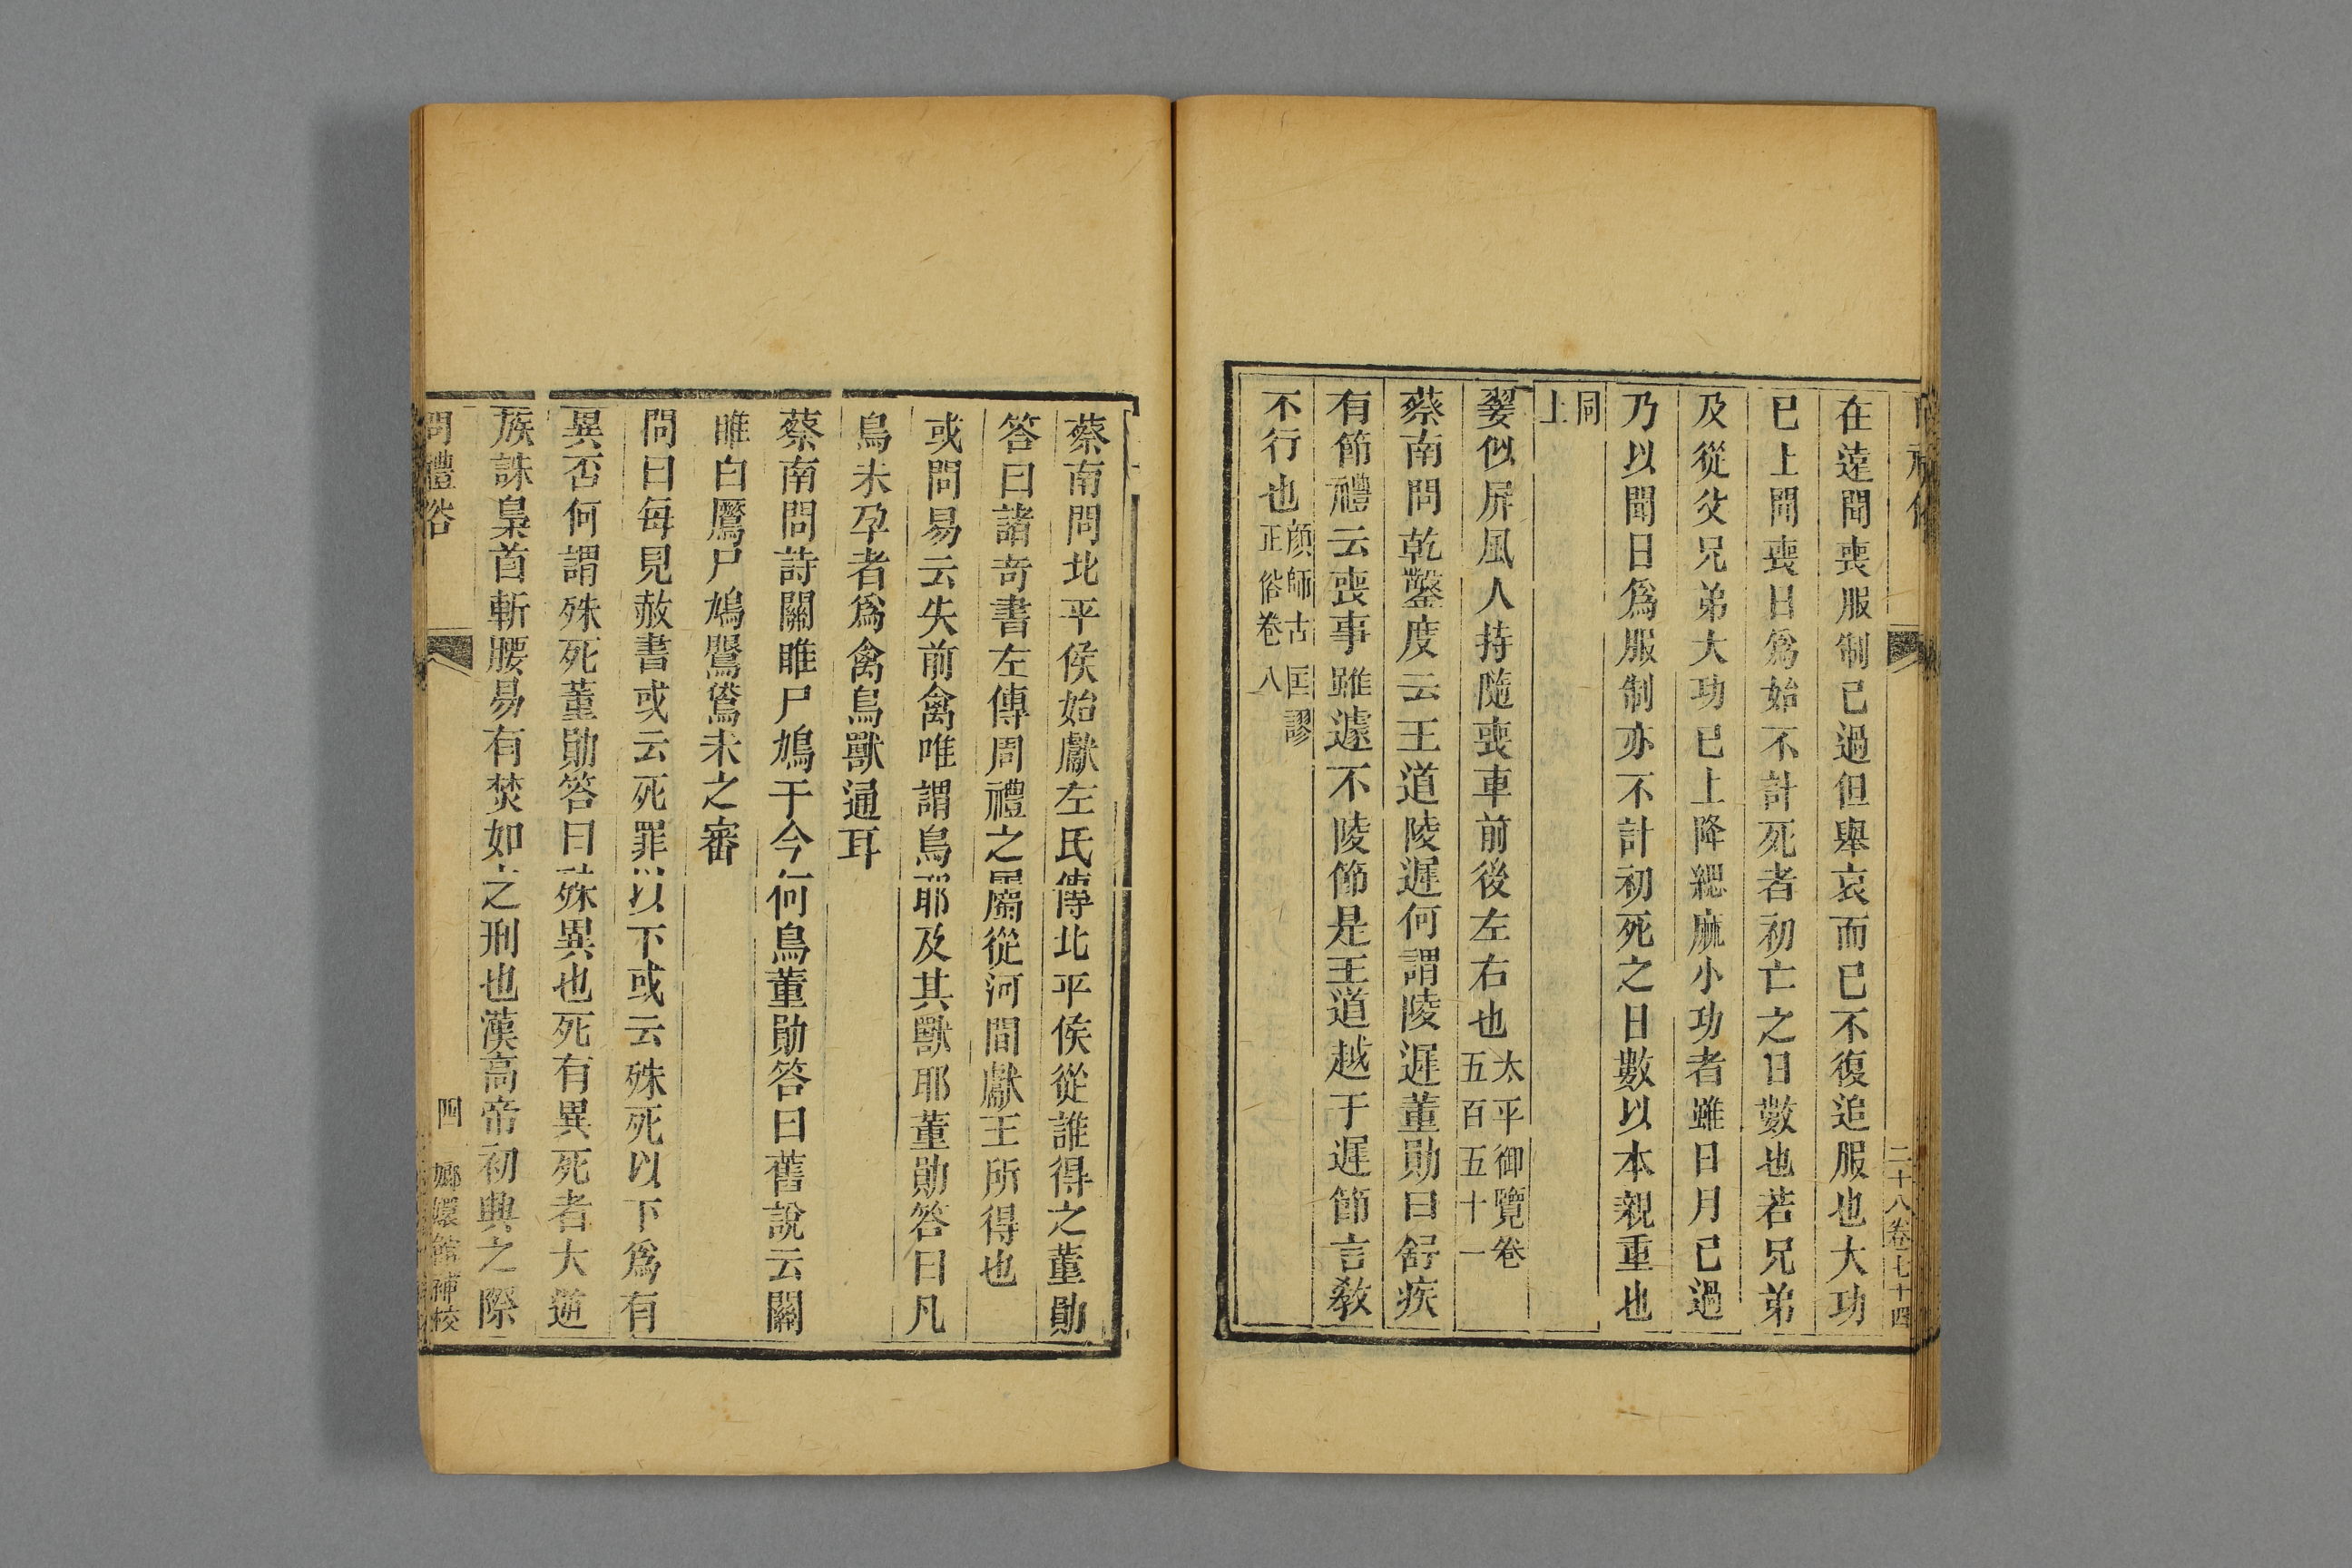 二十八卷七十四
在遠聞喪服制已過但舉哀而已不復追服也大功
已上聞喪日爲始不計死者初亡之日數也若兄弟
及從父兄弟大功已上降緦麻小功者雖日月已過
乃以聞日爲服制亦不計初死之日數以本親重也
同
上
翣似屏風人持隨喪車前後左右也太平御覽卷
五百五十一
蔡南問乾鑿度云王道陵遲何謂陵遲董勛曰舒疾
有節禮云喪事雖遽不陵節是王道越于遲節言敎
不行也顔師古匡謬
正俗卷八
蔡南問北平侯始獻左氏傳北平侯從誰得之董勛
答曰諸奇書左傳周禮之屬從河間獻王所得也
或問易云失前禽唯謂鳥耶及其獸耶董勛答曰凡
鳥未孕者爲禽鳥獸通耳
蔡南問詩關雎尸鳩于今何鳥董勛答曰舊說云關
雎白鷢尸鳩鷖鴛未之審
問曰每見赦書或云死罪以下或云殊死以下爲有
異否何謂殊死董勛答曰殊異也死有異死者大逆
族誅梟首斬腰易有焚如之刑也漢高帝初興之際
問禮俗
四
嫏嬛館補校